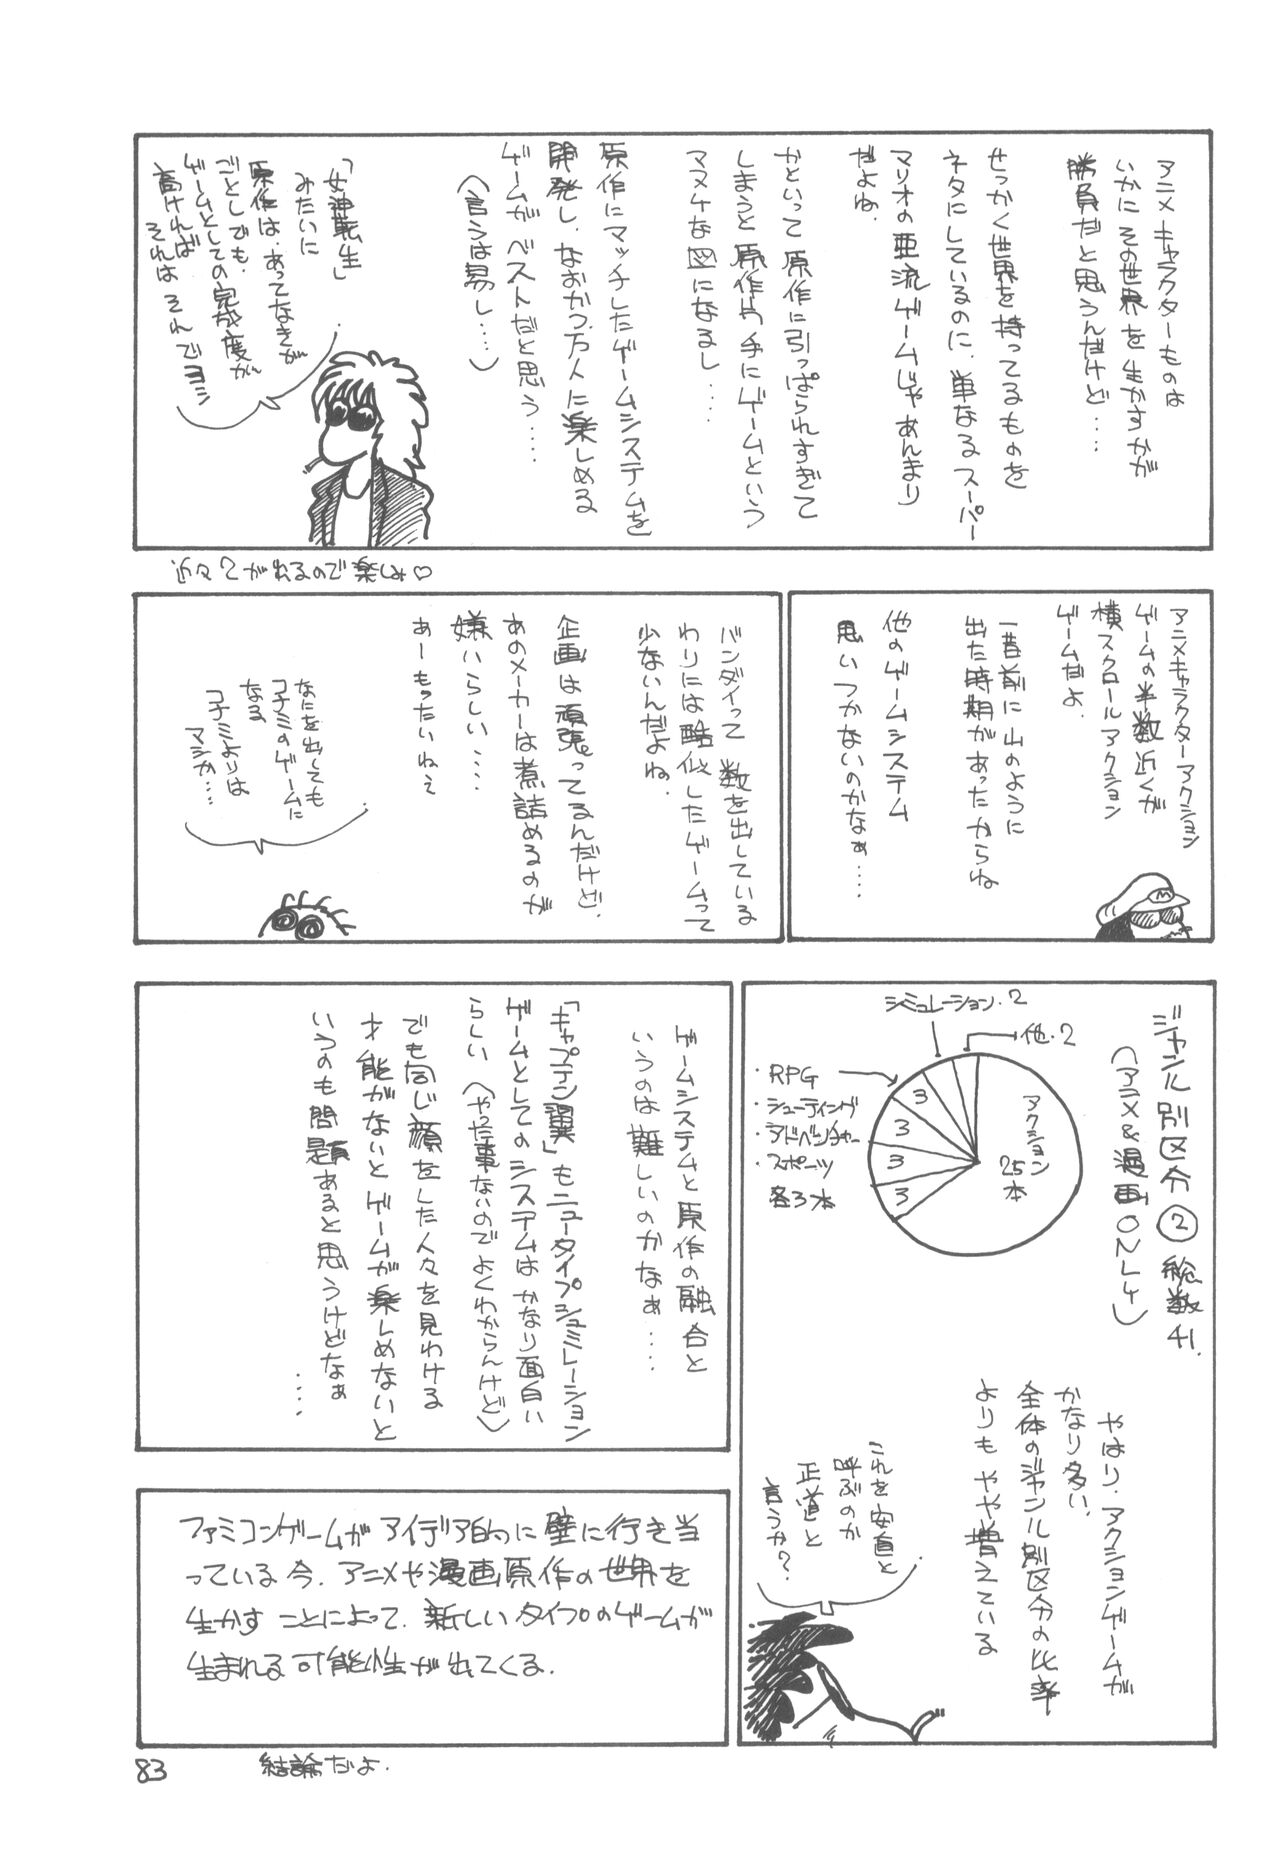 アニメキャラクターものは
いかにその世界を生かすかが
勝負だと思うんだけど・・・・
せっかく世界を持ってるものを
ネタにしているのに、単なるスーパー
マリオの亜流ゲームじゃあんまり
だよね。
かといって原作に引っぱられすぎて
しまうと原作片手にゲームという
マヌケな図になるし・・・・
原作にマッチしたゲームシステムを
開発し、なおかつ、万人に楽しめる
ゲームがベストだと思う・・・・
(言うは易し・・・・)
「女神転生」
みたいに
原作は、あってなきが
ごとしでも、
ゲームとしての完成度が
高ければ
それは それでヨシ
近々2が出るので楽しみ♡
アニメキャラクターアクション
ゲームの半数近くが
横スクロールアクション
ゲームだよ。
一昔前に山のように
出た時期があったからね
他のゲームシステム
思いつかないのかなぁ・・・・
M
バンダイって 数を出している
わりには酷似したゲームって
少ないんだよね。
企画は頑張ってるんだけど、
あのメーカーは煮詰めるのが
嫌いらしい・・・・
あーもったいねぇ
なにを出しても
コナミのゲームに
なる
コナミよりは
マシか・・・・
ジャンル別区分② 総数41.
(アニメ&漫画ONLY)
シミュレーション・2
他・2
・RPG
・シューティング
・アドベンチャー
・スポーツ
各3本
3
3
3
3
アクション
25本
やはり、アクションゲームが
かなり多い、
全体のジャンル別区分の比率
よりも やや増えている
これを安直と
呼ぶのか
正道と
言うか?
ゲームシステムと原作の融合と
いうのは難しいのかなぁ・・・・
「キャプテン翼」もニュータイプシュミレーション
ゲームとしてのシステムはかなり面白い
らしい(やった事ないのでよくわからんけど)
でも同じ顔をした人々を見わける
才能がないとゲームが楽しめないと
いうのも問題あると思うけどなぁ
・・・・
ファミコンゲームがアイデア的に壁に行き当
っている今、アニメや漫画原作の世界を
生かすことによって、新しいタイプのゲームが
生まれる可能性が出てくる。
結論だよ.
83